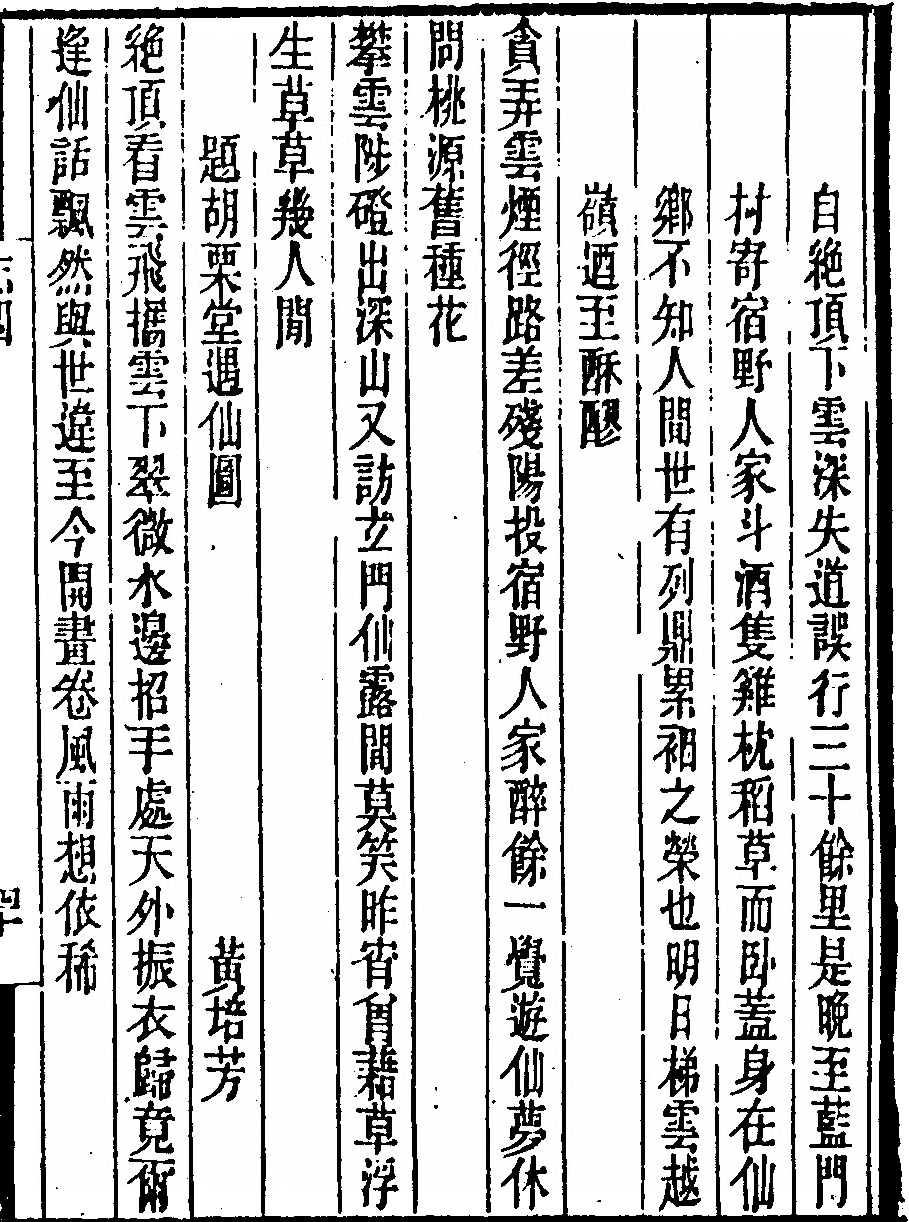 自絶頂下雲深失道誤行三十餘里是晚至藍門
村寄宿野人家斗酒隻雞枕稻草而卧蓋身在仙
鄉不知人間世有列鼎累裀之榮也明日梯雲越
嶺迺至酥醪
貪弄雲煙徑路差殘陽投宿野人家醉餘一覺遊仙夢休
問桃源舊種花
攀雲陟磴出深山又訪玄門仙露間莫笑昨宵曾藉草浮
生草草幾人閒
題胡栗堂遇仙圖 黄培芳
絶頂看雲飛攜雲下翠微水邊招手處天外振衣歸竟爾
逢仙話飄然與世違至今開畫卷風雨想依稀